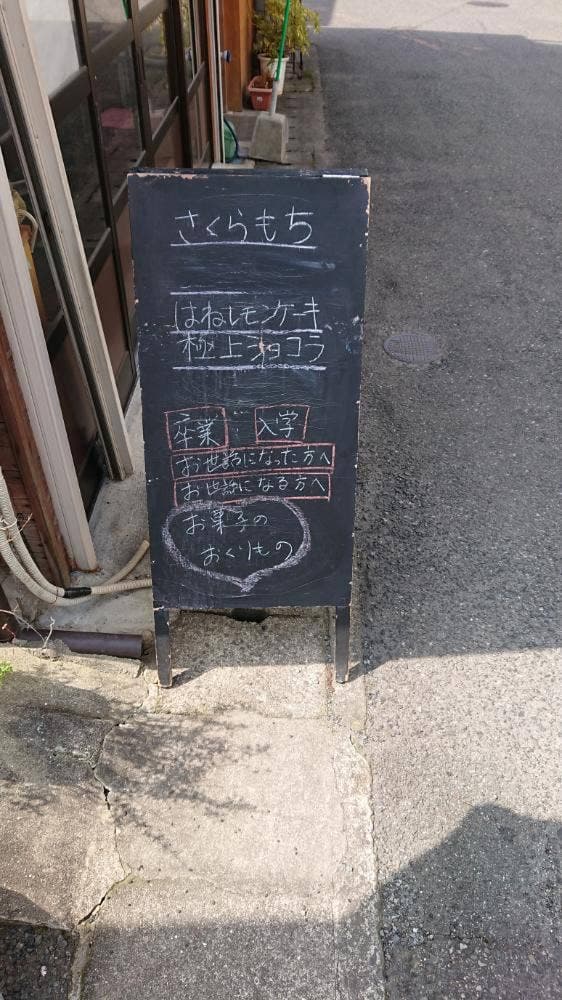 さくらもち
はねレモンケーキ
極上ショコラ
卒業 … 入学
お世話になった方へ
お世話になる方へ
お菓子の
おくりもの